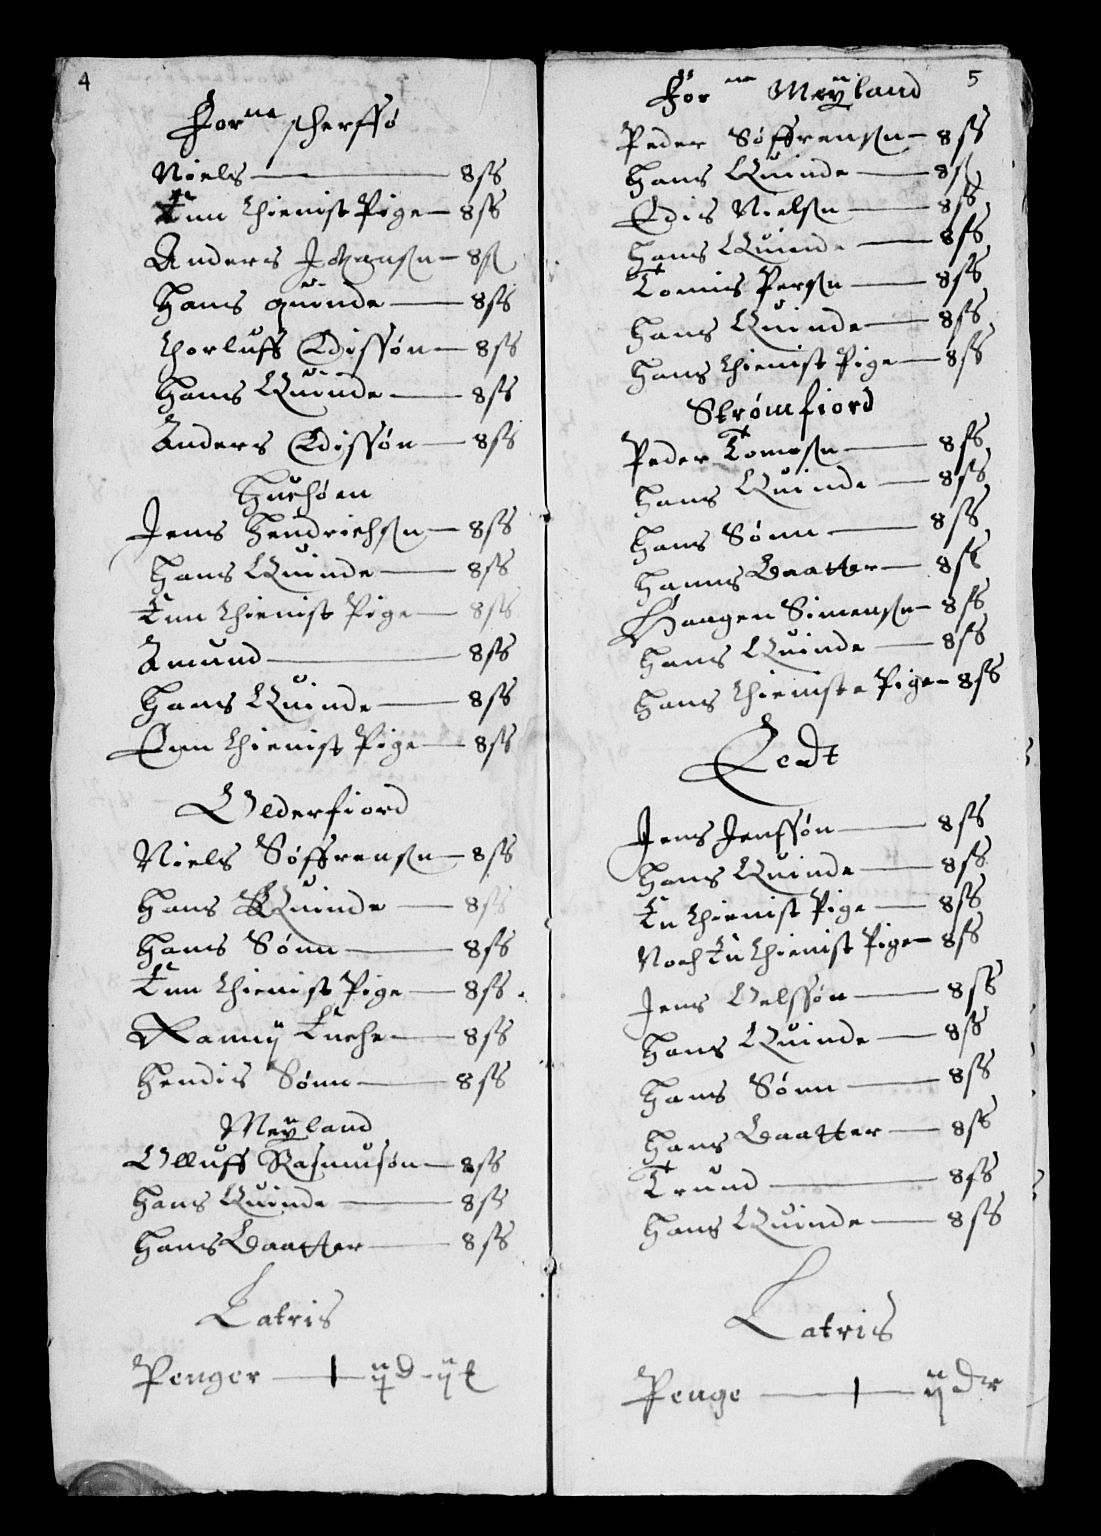 4
For ne scherffsø
Niels — 8 ss
Enn thienist Pige — 8 ss
Anders Johansen — 8 ss
Hans quinde — 8 ss
Thorluff Edissøn — 8 ss
Hans Quinde — 8 ss
Anders Edissøn — 8 ss
Huchøen
Jens Hendrichsen — 8 ss
Hans Quinde — 8 ss
Enn thienist Pige — 8 ss
Amund — 8 ss
Hans Quinde — 8 ss
Enn thienist Pige — 8 ss
Olderfiord
Niels Søffrensen — 8 ss
Hans Quinde — 8 ss
Hans Sønn — 8 ss
Enn thienist Pige — 8 ss
Rannij Enche — 8 ss
Hendis Sønn — 8 ss
Meyland
Olluff Rasmusøn — 8 ss
Hans Quinde — 8 ss
Hans Daatter — 8 ss
Latris
Penger — 1 ij d – ij
5
For ne Meyland
Peder Søffrensen — 8 ss
Hans Quinde — 8 ss
Edis Nielsen — 8 ss
Hans Quinde — 8 ss
Tomis Persen — 8 ss
Hans Quinde — 8 ss
Hans thienist Pige — 8 ss
Strømfiord
Peder Tomesen — 8 ss
Hans Quinde — 8 ss
Hans Sønn — 8 ss
Hanns Daatter — 8 ss
Haagen Simensen — 8 ss
Hans Quinde — 8 ss
Hans thieniste Pige — 8 ss
Jens Jenssøn — 8 ss
Hans Quinde — 8 ss
En thienist Pige — 8 ss
Noch En thienist Pige — 8 ss
Jens Oelssøn — 8 ss
Hans Quinde — 8 ss
Hans Sønn — 8 ss
Hans Daatter — 8 ss
Trund — 8 ss
Hans Quinde — 8 ss
Latris
Penge — 1 — ij dr